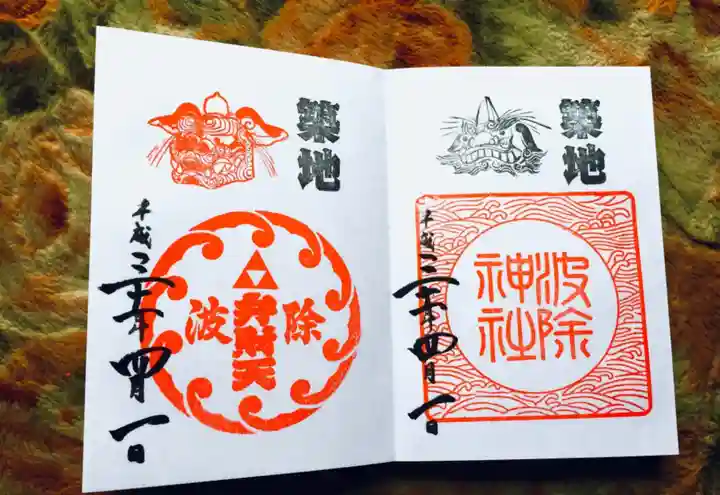 築地
波除
神社
平成三十年四月一日
築地
波除
弁財天
平成三十年四月一日